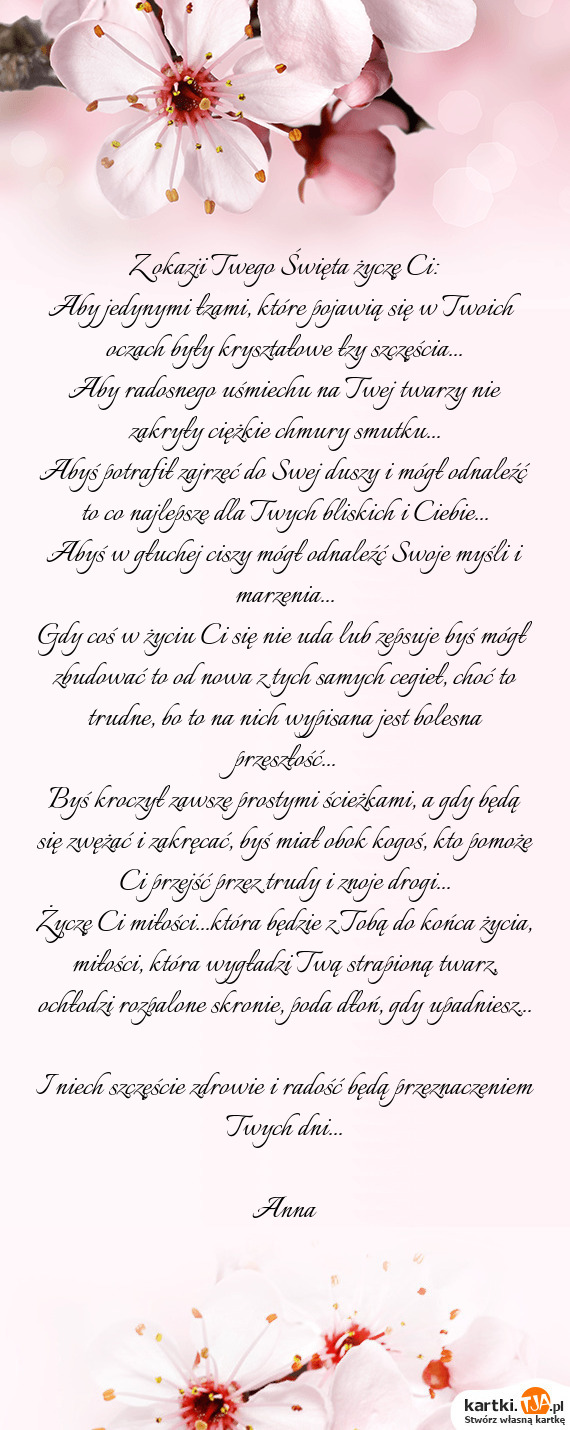 Z okazji Twego Święta życzę Ci:
Aby jedynymi łzami, które pojawią się w Twoich
oczach były kryształowe łzy szczęścia...
Aby radosnego uśmiechu na Twej twarzy nie
zakryły ciężkie chmury smutku...
Abyś potrafił zajrzeć do Swej duszy i mógł odnaleźć
to co najlepsze dla Twych bliskich i Ciebie...
Abyś w głuchej ciszy mógł odnaleźć Swoje myśli i
marzenia...
Gdy coś w życiu Ci się nie uda lub zepsuje byś mógł
zbudować to od nowa z tych samych cegieł, choć to
trudne, bo to na nich wypisana jest bolesna
przeszłość...
Byś kroczył zawsze prostymi ścieżkami, a gdy będą
się zwężać i zakręcać, byś miał obok kogoś, kto pomoże
Ci przejść przez trudy i znoje drogi...
Życzę Ci miłości...która będzie z Tobą do końca życia,
miłości, która wygładzi Twą strapioną twarz,
ochłodzi rozpalone skronie, poda dłoń, gdy upadniesz...
I niech szczęście zdrowie i radość będą przeznaczeniem
Twych dni...
Anna
kartki.TJA.pl
Stwórz własną kartkę